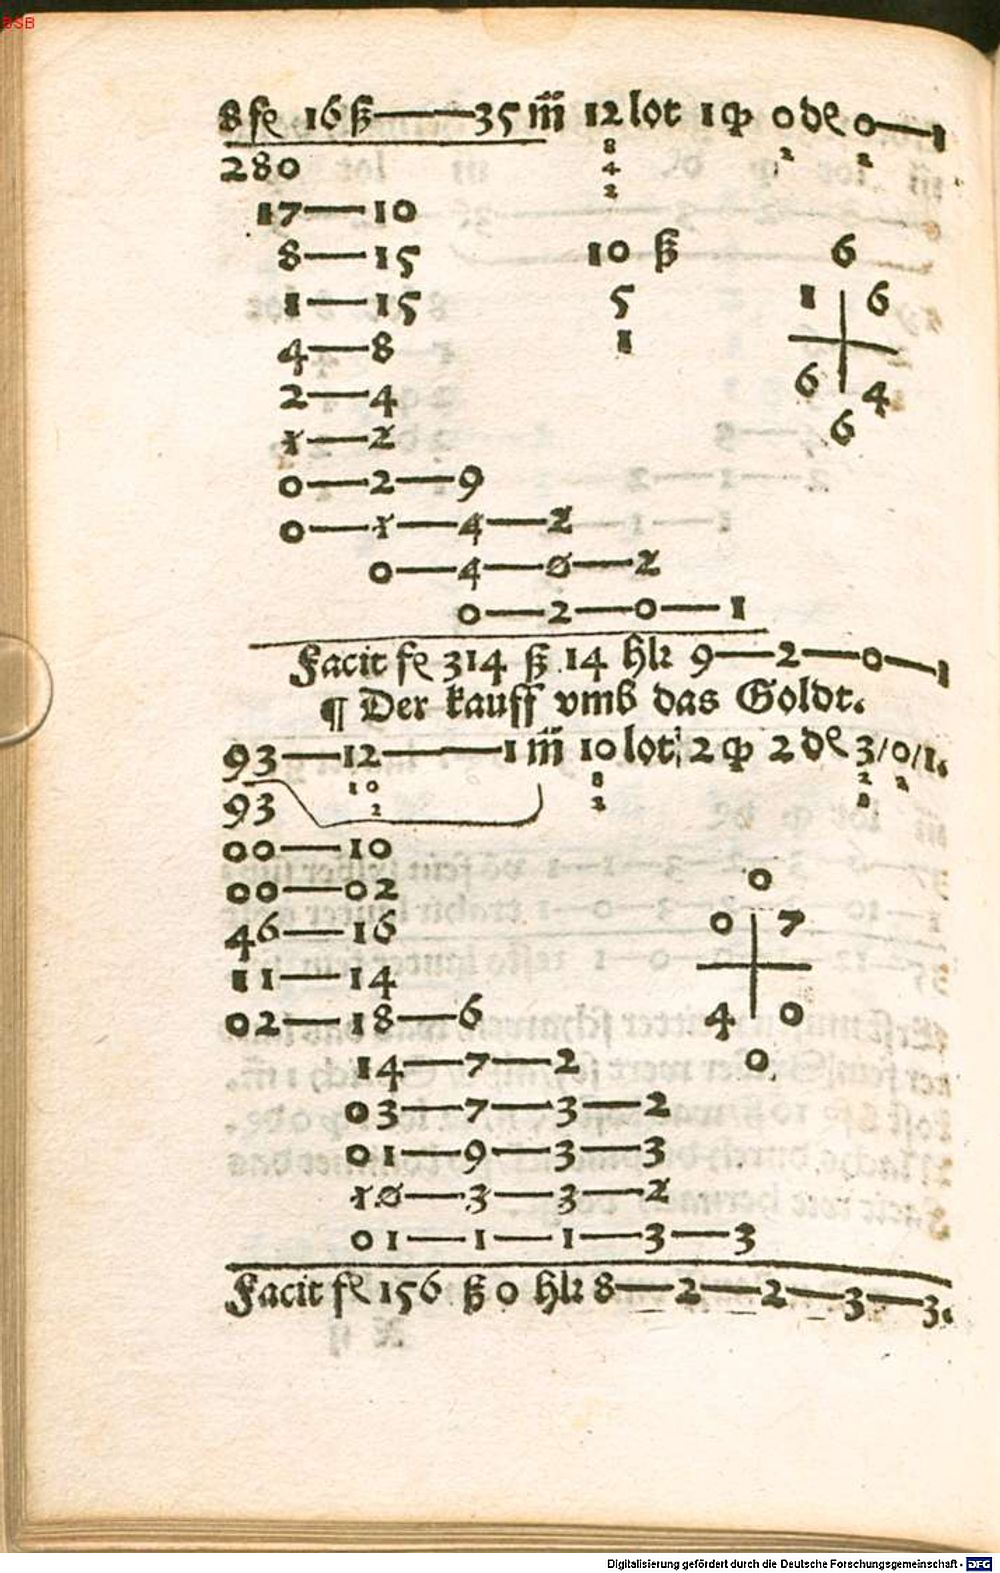 BSB
8 fl 16 ß——35 m̃ 12 lot 1 qp 0 de 0—1
8 2 2
280 4
2
17—10
8—15 10 ß 6
1—15 5 1 6
4—8 1
2—4 6 4
1—2 6
0—2—9
0—1—4—2
0—4—0—2
0—2—0—1
Facit fl 314 ß 14 hlr 9—2—0—1
¶ Der kauff vmb das Goldt.
93—12——1 m̃ 10 lot 2 qp 2 de 3/0/1.
10 8 2 2
93 2 2 8
00—10
00—02 0
46—16 0 7
11—14
02—18—6 4 0
14—7—2 0
03—7—3—2
01—9—3—3
10—3—3—2
01—1—1—3—3
Facit fl 156 ß 0 hlr 8—2—2—3—3.
Digitalisierung gefördert durch die Deutsche Forschungsgemeinschaft - DFG